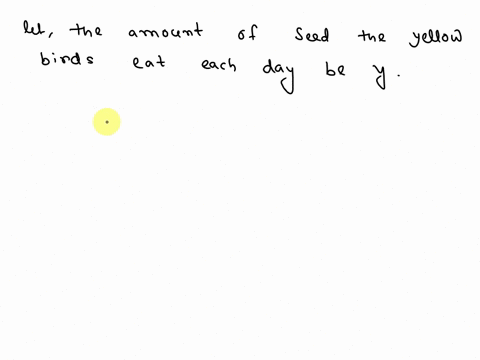 let, the amount of seed the yellow
birds eat each day be y.